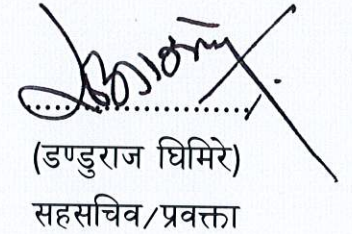 (डण्डुराज घिमिरे)
सहसचिव/प्रवक्ता